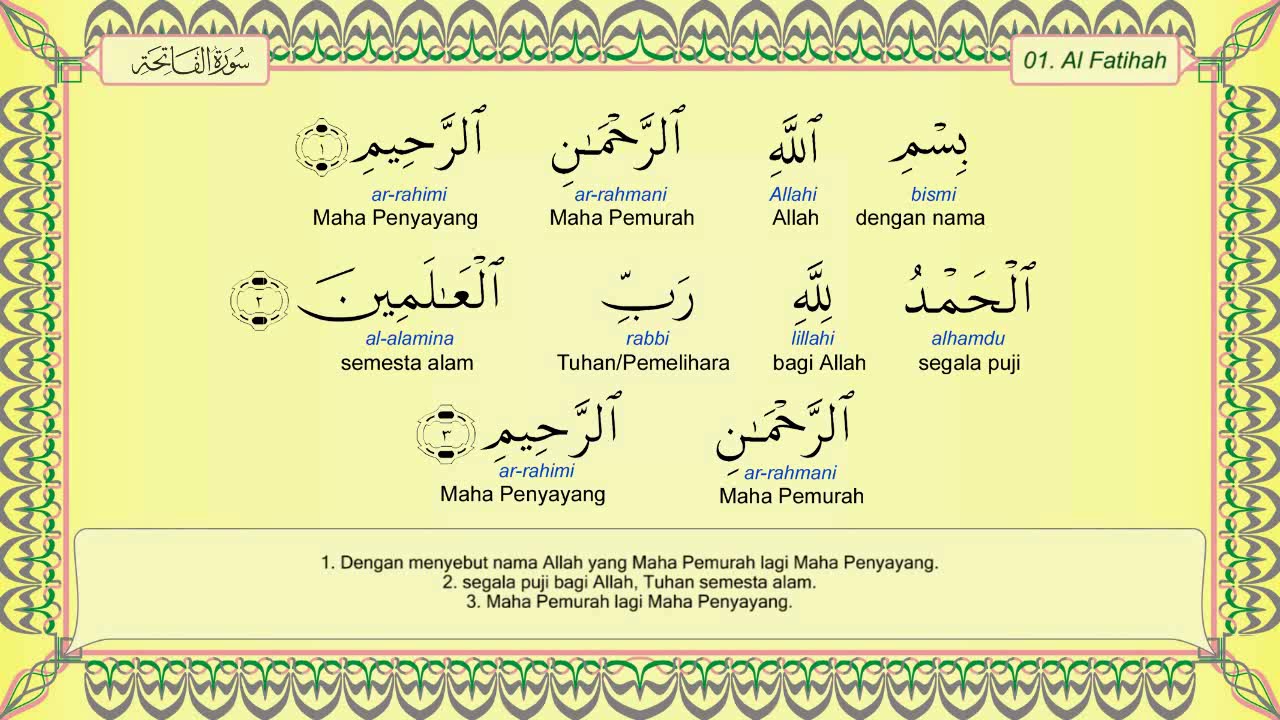 سُورَةُ الفَاتِحَةِ
01. Al Fatihah
بِسْمِ ٱللَّهِ ٱلرَّحْمَـٰنِ ٱلرَّحِيمِ ١
bismi Allahi ar-rahmani ar-rahimi
dengan nama Allah Maha Pemurah Maha Penyayang
ٱلْحَمْدُ لِلَّهِ رَبِّ ٱلْعَـٰلَمِينَ ٢
alhamdu lillahi rabbi al-alamina
segala puji bagi Allah Tuhan/Pemelihara semesta alam
ٱلرَّحْمَـٰنِ ٱلرَّحِيمِ ٣
ar-rahmani ar-rahimi
Maha Pemurah Maha Penyayang
1. Dengan menyebut nama Allah yang Maha Pemurah lagi Maha Penyayang.
2. segala puji bagi Allah, Tuhan semesta alam.
3. Maha Pemurah lagi Maha Penyayang.